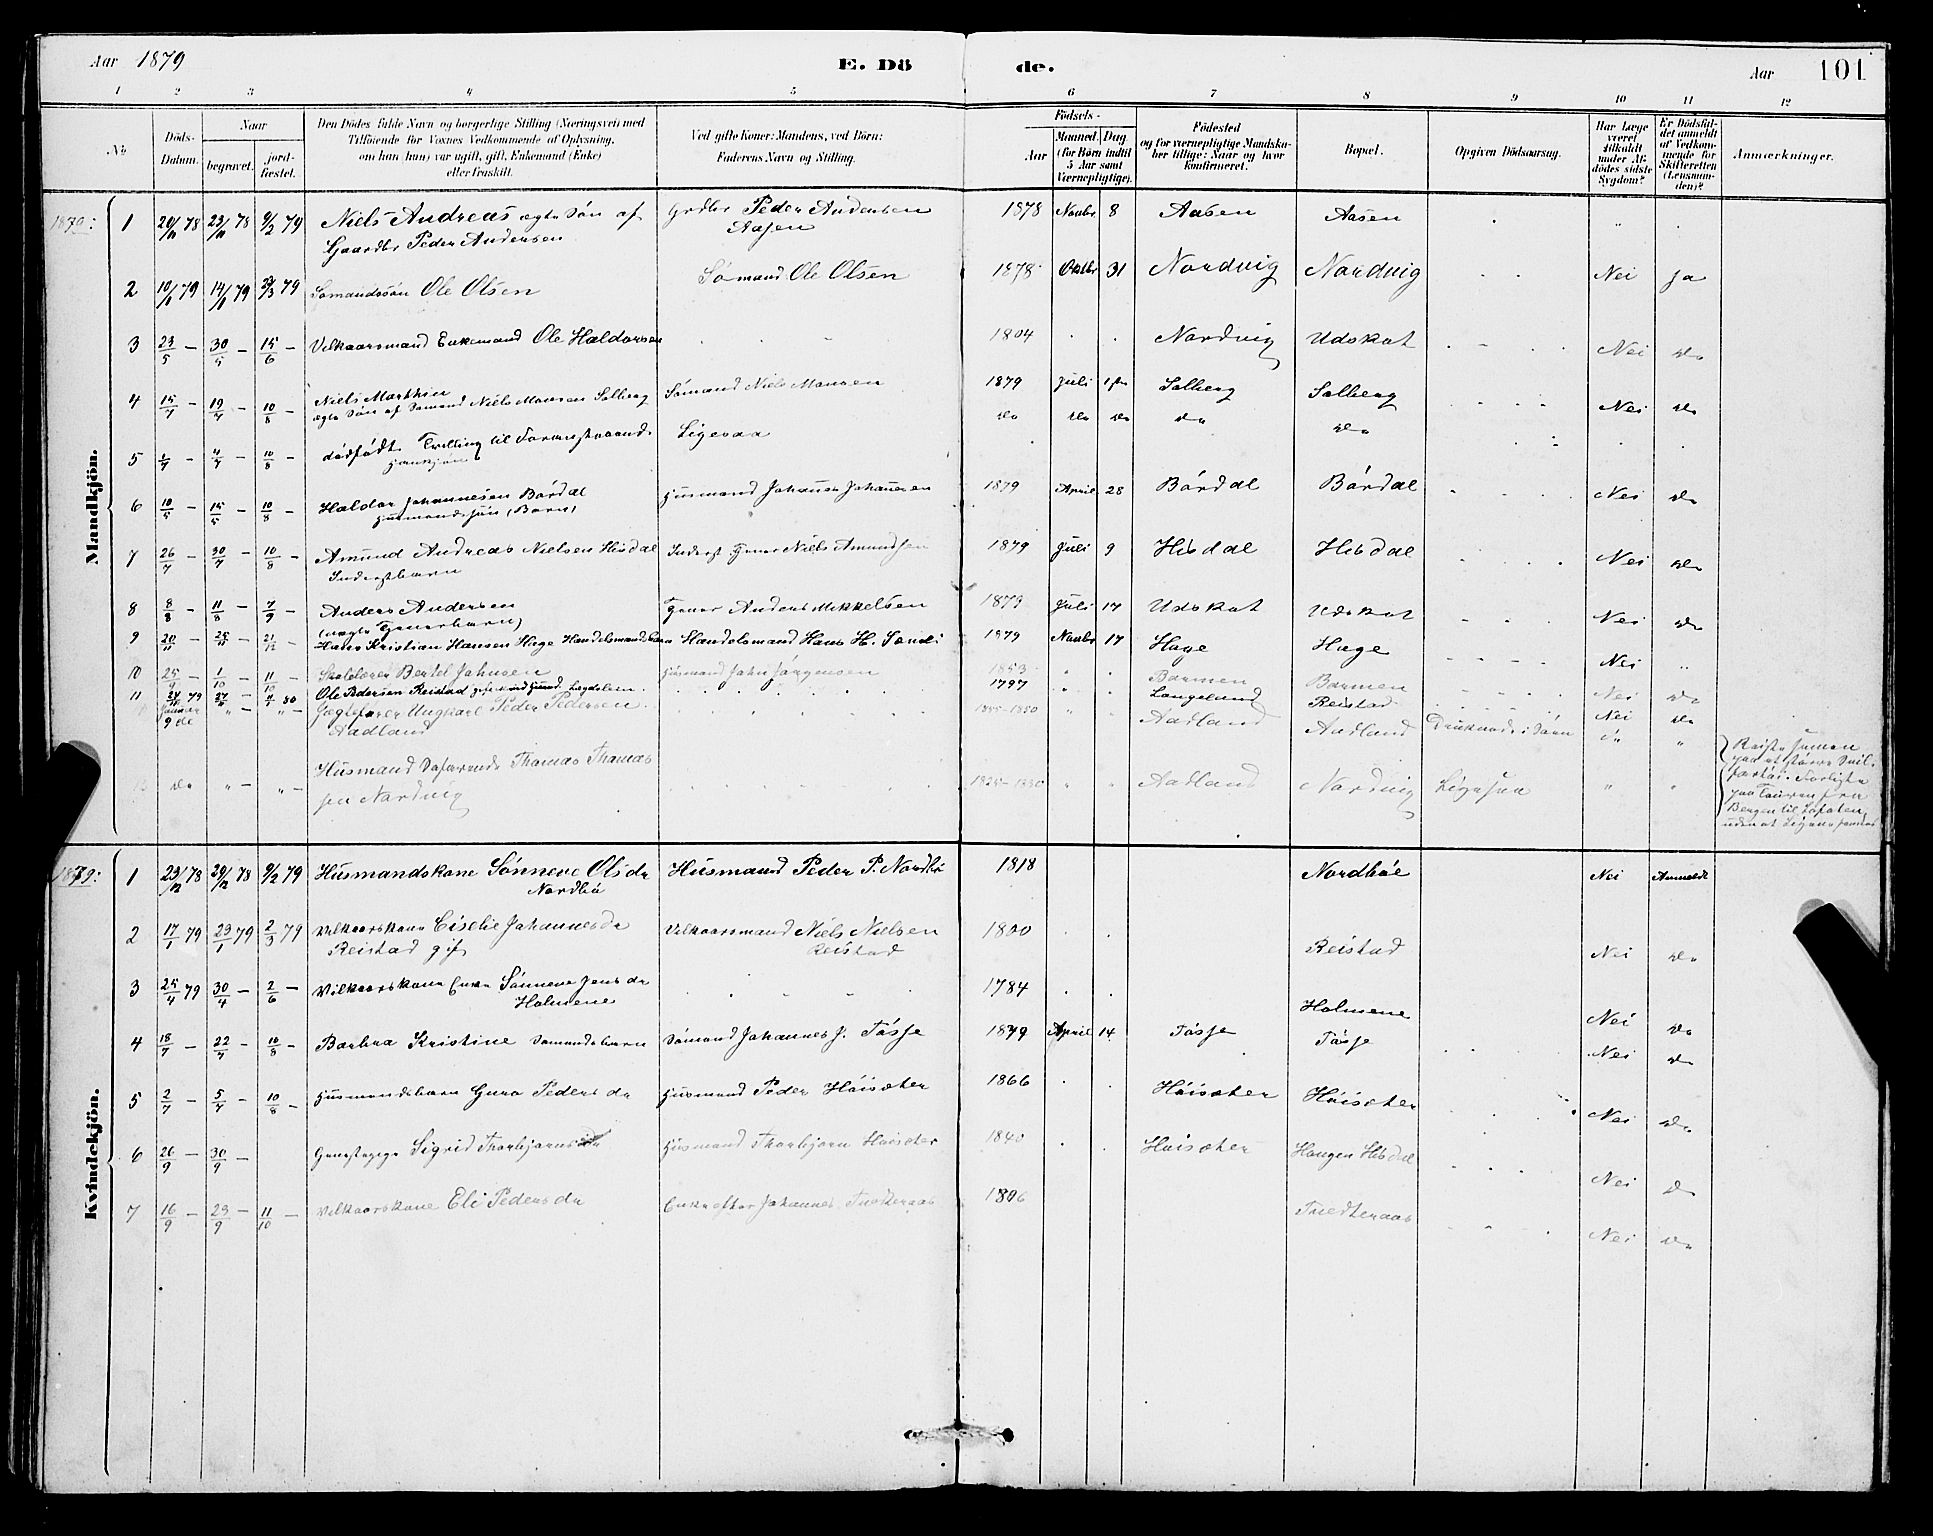 Aar 1879 E. Dö de. Aar 101
1 2 3 4 5 6 7 8 9 10 11 12
No
Döds-Datum.
Naar
begravet.
jordfæstet.
Den Dödes fulde Navn og borgerlige Stilling (Næringsvei) med
Tilföiende for Voxnes Vedkommende af Oplysning,
om han (hun) var ugift, gift, Enkemand (Enke)
eller fraskilt.
Ved gifte Koner: Mandens, ved Börn:
Faderens Navn og Stilling.
Födsels-
Aar
Maaned
Dag
(for Börn indtil
5 Aar samt
Værnepligtige).
Födested
og for værnepligtige Mandskaber tillige: Naar og hvor
konfirmeret.
Bopæl.
Opgiven Dödsaarsag.
Har Læge
været
tilkaldt
under Afdödes sidste
Sygdom?
Er Dödsfaldet anmeldt
af Vedkommende for
Skifteretten
(Lensmanden)?
Anmærkninger.
Mandkjön.
1879: 1 20/11 78 23/11 78 9/2 79 Niels Andreas ægte Søn af Grdbr Peder Andersen 1878 Novbr 8 Aasen Aasen
Gaardbr Peder Andersen Aasen
2 10/1 79 14/1 79 79 Sømandssøn Ole Olsen Sømand Ole Olsen 1878 Oktbr 31 Nordvig Nordvig Nei Ja
3 23/5 – 30/5 – 15/6 – Vilkaarsmand Enkemand Ole Haldorsen 1804 Nordvig Udskot Nei do
4 15/7 – 19/7 – 10/8 – Niels Matthias Sømand Niels Monsen 1879 Juli 1ste Solberg Solberg Nei do
ægte Søn af Sømand Niels Monsen Solberg do do do do do
5 1/7 – 4/7 – 10/8 – dødfødt Tvilling til Foranstaaende Ligesaa
6 10/5 – 15/5 – 10/8 – Haldor Johannesen Børdal Husmand Johannes Johannesen 1879 April 28 Børdal Børdal Nei do
Husmandssøn (Barn)
7 26/7 – 30/7 – 10/8 – Amund Andreas Nielsen Hisdal Inderst Niels Amundsen 1879 Juli 9 Hisdal Hisdal Nei do
Inderstbarn
8 8/8 – 11/8 – 7/9 – Anders Andersen Anders Mikkelsen 1879 Juli 17 Udskot Udskot Nei do
9 20/11 – 25/11 – 21/12 – Hans Kristian Hansen Hage Handelsmandsbarn Handelsmand Hans H. 1879 Novbr 17 Hage Hage Nei "
10 25/9 – 1/10 – 11/10 – Skolelærer Bertel Johnsen Husmand John Jørgensen 1853 Barmen Barmen Nei do
11 79 80 Ole Pedersen Reistad Lægdslem 1797 Langeland Reistad Nei do
Januar 9de " – " – Jægtefører Ungkarl Peder Pedersen Aadland Aadland Druknede i Søen
Aadland
do " – " – Husmand Søfarende Thomas Thomas
sen Nordvig Aadland Nordvig Ligesaa
Reiste sammen
paa et større Seil-
fartøi. Forligte
paa Touren fra
Bergen til Lofoten,
uden at Ligene fandtes
Kvindekjön.
1879: 1 23/12 78 29/12 78 9/2 79 Husmandskone Sønneve Olsdr Husmand Peder P. Nordbø 1818 Nordbøe Nei Anmeldt
Nordbø
2 17/1 79 23/1 79 2/3 79 Vilkaarskone Ciselie Johannesdr Vilkaarsmand Niels Nielsen 1800 Reistad Nei do
Reistad gift Reistad
3 25/4 79 30/4 – 2/6 – Vilkaarskone Enke Sønneve Jensdr 1784 Holmene Nei do
Holmene
4 18/7 – 22/7 – 10/8 – Barbra Kristine Sømandsbarn Sømand Johannes J. Tøsje 1879 April 14 Tøsje Tøsje Nei do
5 2/7 – 5/7 – 10/8 – Husmandsbarn Guro Pedersdr Husmand Peder Høisæter 1866 Høisæter Høisæter Nei do
6 26/9 – 30/9 – Sigrid Thorbjørnsdr Husmand Thorbjørn Høisæter 1840 Høisæter Haugen Hisdal Nei do
7 16/9 – 23/9 – 11/10 – Vilkaarskone Eli Pedersdr Enke efter Johannes Tvedteraas 1806 Tvedteraas Nei do